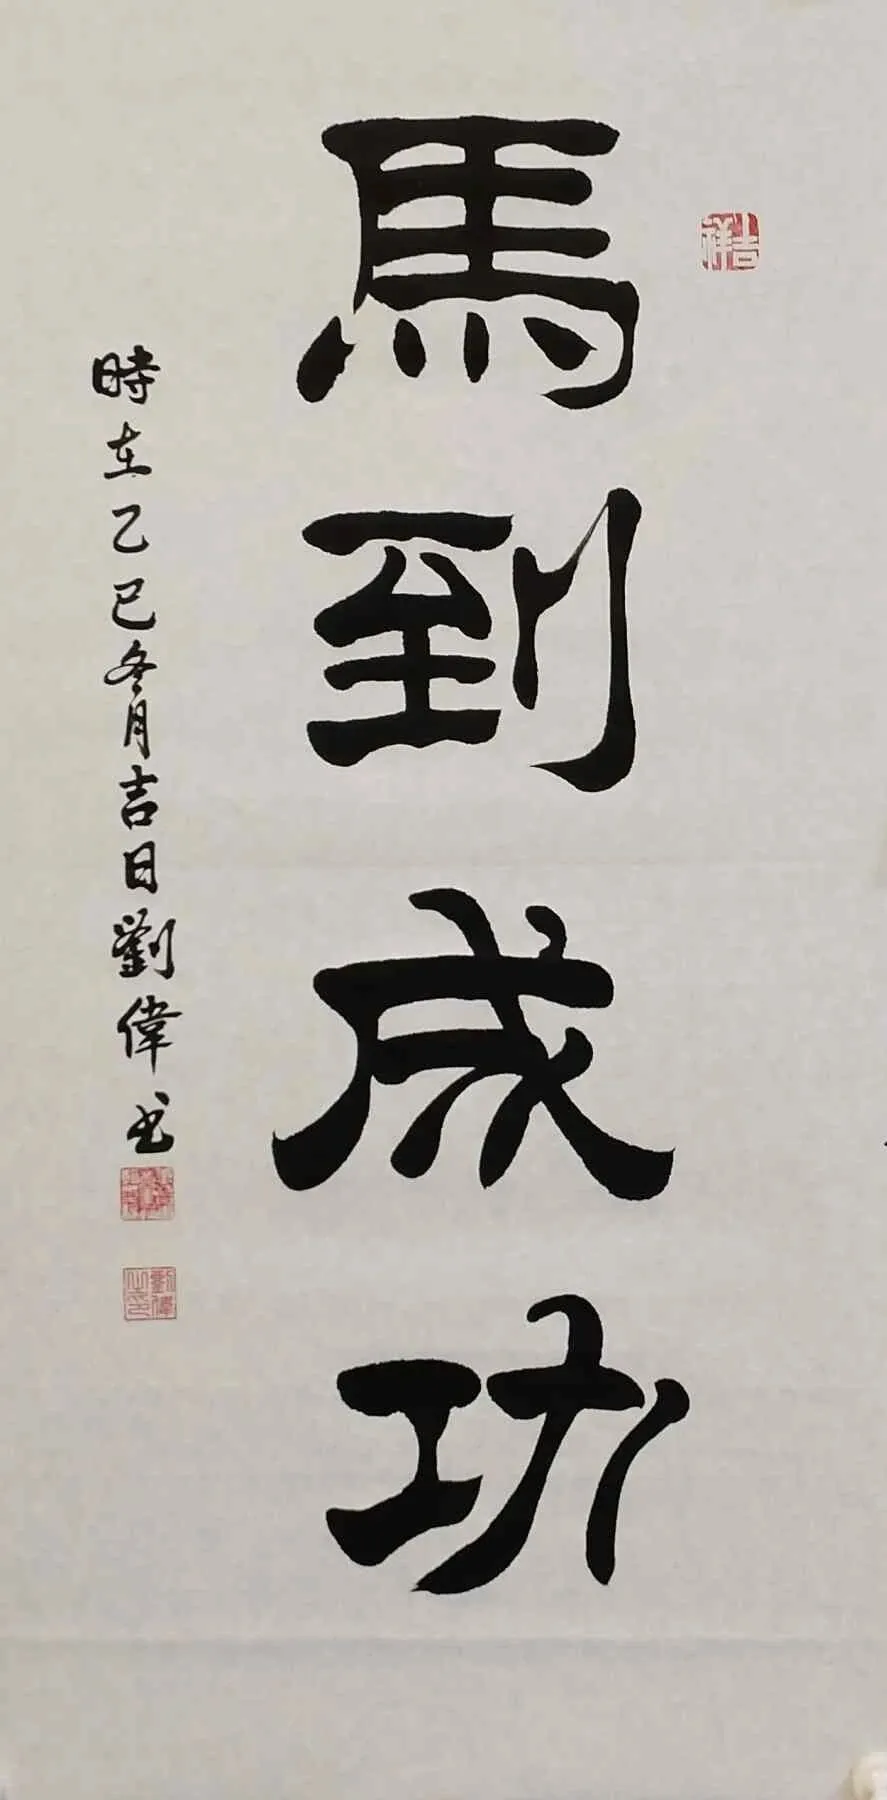 吉祥
馬到成功
時在乙巳冬月吉日劉偉书
劉偉之印